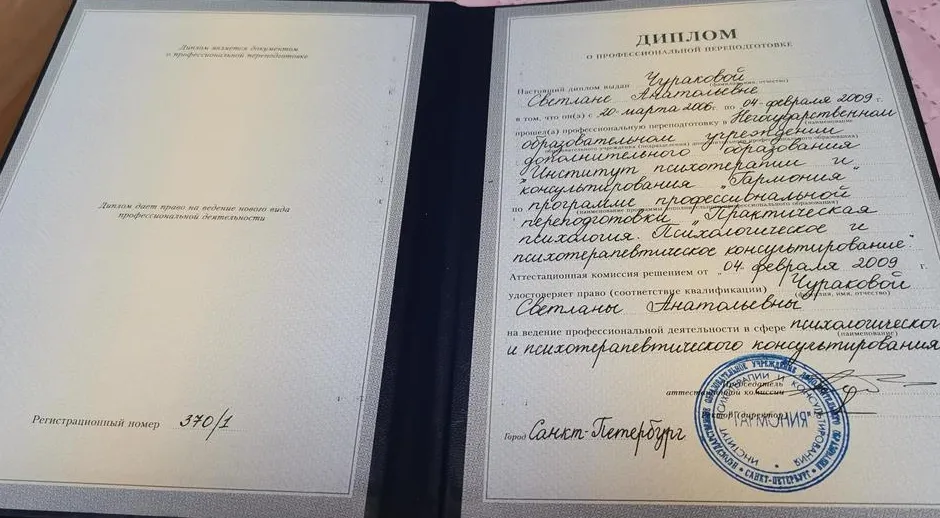 Диплом является документом
о профессиональной переподготовке
Диплом дает право на ведение нового вида
профессиональной деятельности
Регистрационный номер 370/1
ДИПЛОМ
О ПРОФЕССИОНАЛЬНОЙ ПЕРЕПОДГОТОВКЕ
Настоящий диплом выдан Чураковой
(фамилия, имя, отчество)
Светлане Анатольевне
в том, что он(а) с 20 марта 2006 г. по 04 февраля 2009 г.
прошел(а) профессиональную переподготовку в Негосударственном
(наименование
образовательном учреждении
образовательного учреждения (подразделения) дополнительного профессионального образования)
дополнительного образования
"Институт психотерапии и
консультирования "Гармония"
по программе профессиональной
(наименование программы дополнительного профессионального образования)
переподготовки "Практическая
психология. Психологическое и
психотерапевтическое консультирование".
Аттестационная комиссия решением от "04" февраля 2009 г.
удостоверяет право (соответствие квалификации) Чураковой
(фамилия, имя, отчество)
Светланы Анатольевны
на ведение профессиональной деятельности в сфере психологического
(наименование)
и психотерапевтического консультирования
Председатель
аттестационной комиссии
Ректор (директор)
Город Санкт-Петербург
НЕГОСУДАРСТВЕННОЕ ОБРАЗОВАТЕЛЬНОЕ УЧРЕЖДЕНИЕ ДОПОЛНИТЕЛЬНОГО ОБРАЗОВАНИЯ
• САНКТ-ПЕТЕРБУРГ •
ИНСТИТУТ ПСИХОТЕРАПИИ И КОНСУЛЬТИРОВАНИЯ
"ГАРМОНИЯ"